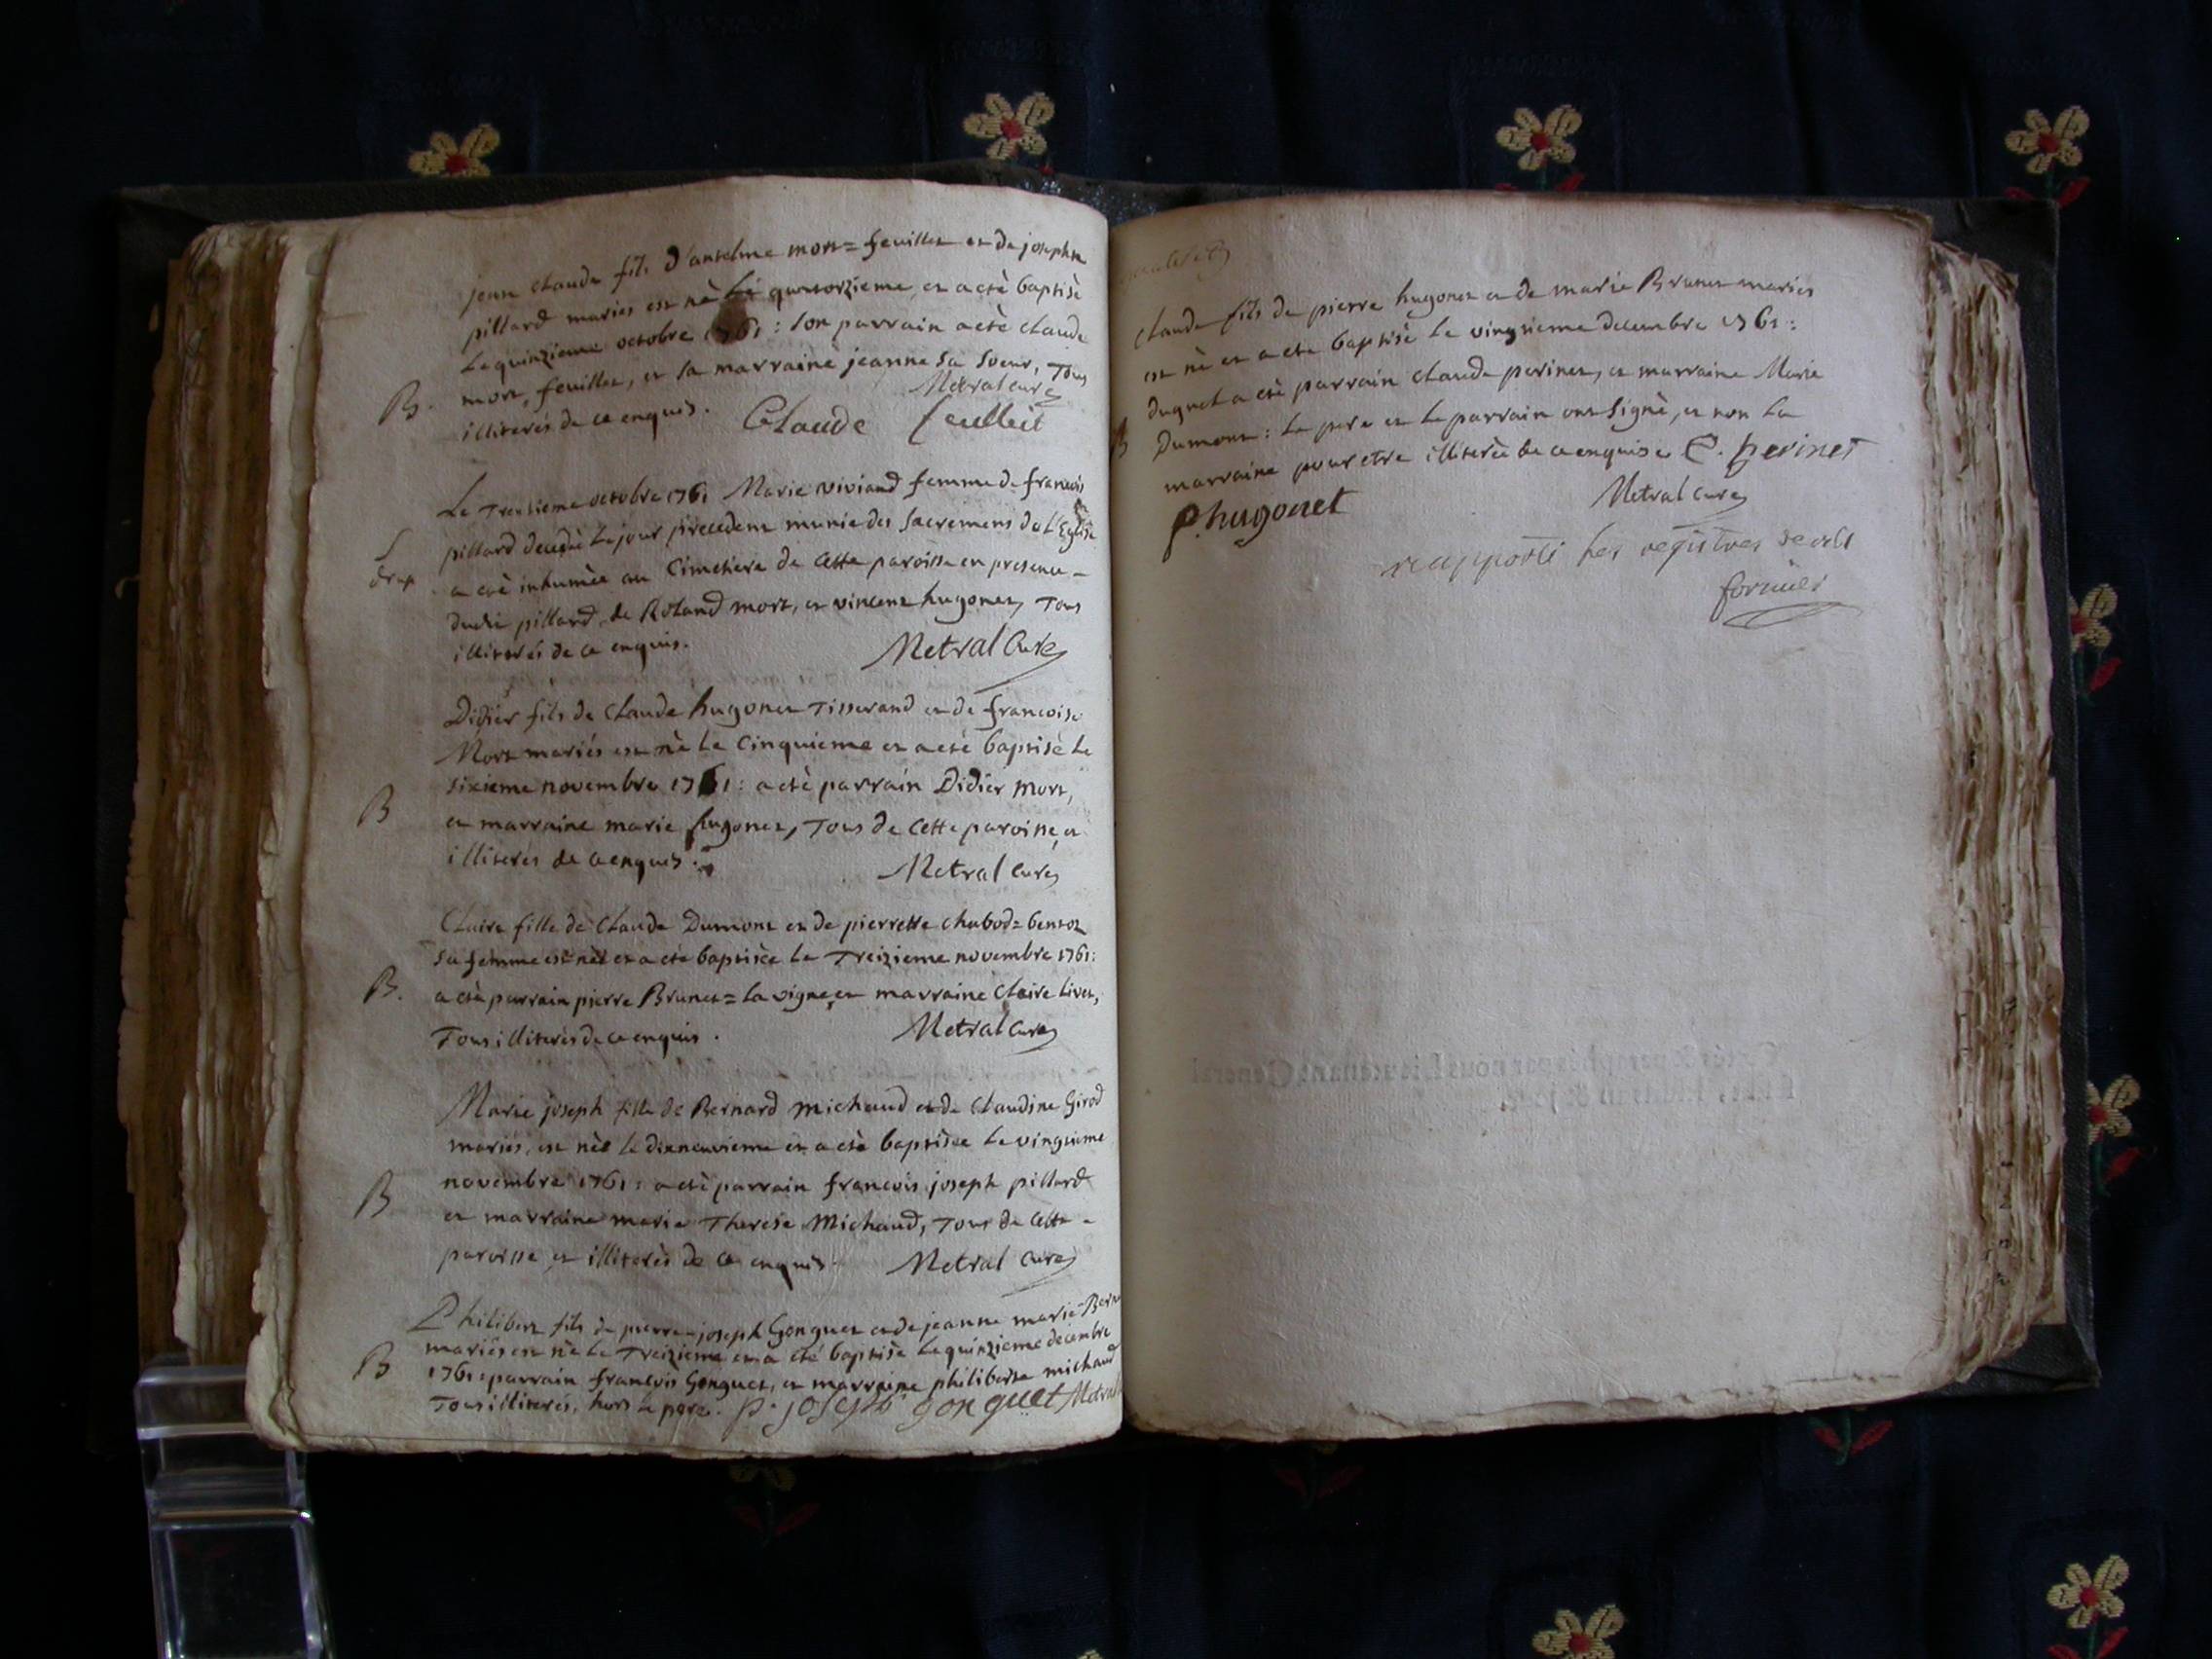 jean claude fils d'anselme mort= feuillet et de josephte
pillard mariés est né le quatorzieme, et a eté baptisé
le quinzieme octobre 1761: son parrain a eté claude
mort, feuillet, et la marraine jeanne sa soeur, Tous
B.
illiterés de ce enquis.
Metral curé
Claude feulliet
Le Trentieme octobre 1761 Marie viviand femme de francois
pillard decedé le jour precedent munie des sacremens de L'Eglise
S
a eté inhumée au Cimetiere de cette paroisse en presence -
dudit pillard, de Roland mort, et vincent hugonet, Tous
illiterés de ce enquis.
Metral Curé
Didier fils de Claude hugonet Tisserand et de francoise
Mort mariés est né le Cinquieme et a eté baptisé le
sixieme novembre 1761: a eté parrain Didier mort,
B
et marraine marie hugonet, Tous de cette paroisse, et
illiterés de ce enquis.
Metral curé
Claire fille de Claude Dumont et de pierrette chabod=
sa femme est née et a eté baptisée le Treizieme novembre 1761:
B.
a eté parrain pierre Brunet= la vigne, et marraine Claire livet,
Tous illiterés de ce enquis.
Metral curé
Marie joseph fille de Bernard michaud et de Claudine Girod
mariés, est née le dixneuvieme et a eté baptisée le vingtieme
novembre 1761: a eté parrain francois joseph pillard
B
et marraine marie Therese Michaud, Tous de cette -
paroisse et illiterés de ce enquis.
Metral curé
Philibert fils de pierre-joseph Gonguet et de jeanne marie
mariés est né le Treizieme et a eté baptisé le quinzieme decembre
B
1761: parrain francois Gonguet, et marraine philiberte michaud
Tous illiterés, hors le pere. p. joseph gonguet Metral
Claude fils de pierre hugonet et de marie Brunet mariés
est né et a eté baptisé le vingtieme decembre 1761:
duquel a eté parrain Claude perinet, et marraine Marie
B
Dumont: le pere et le parrain ont signé, et non la
marraine pour etre illiterée de ce enquise C. perinet
p hugonet
Metral curé